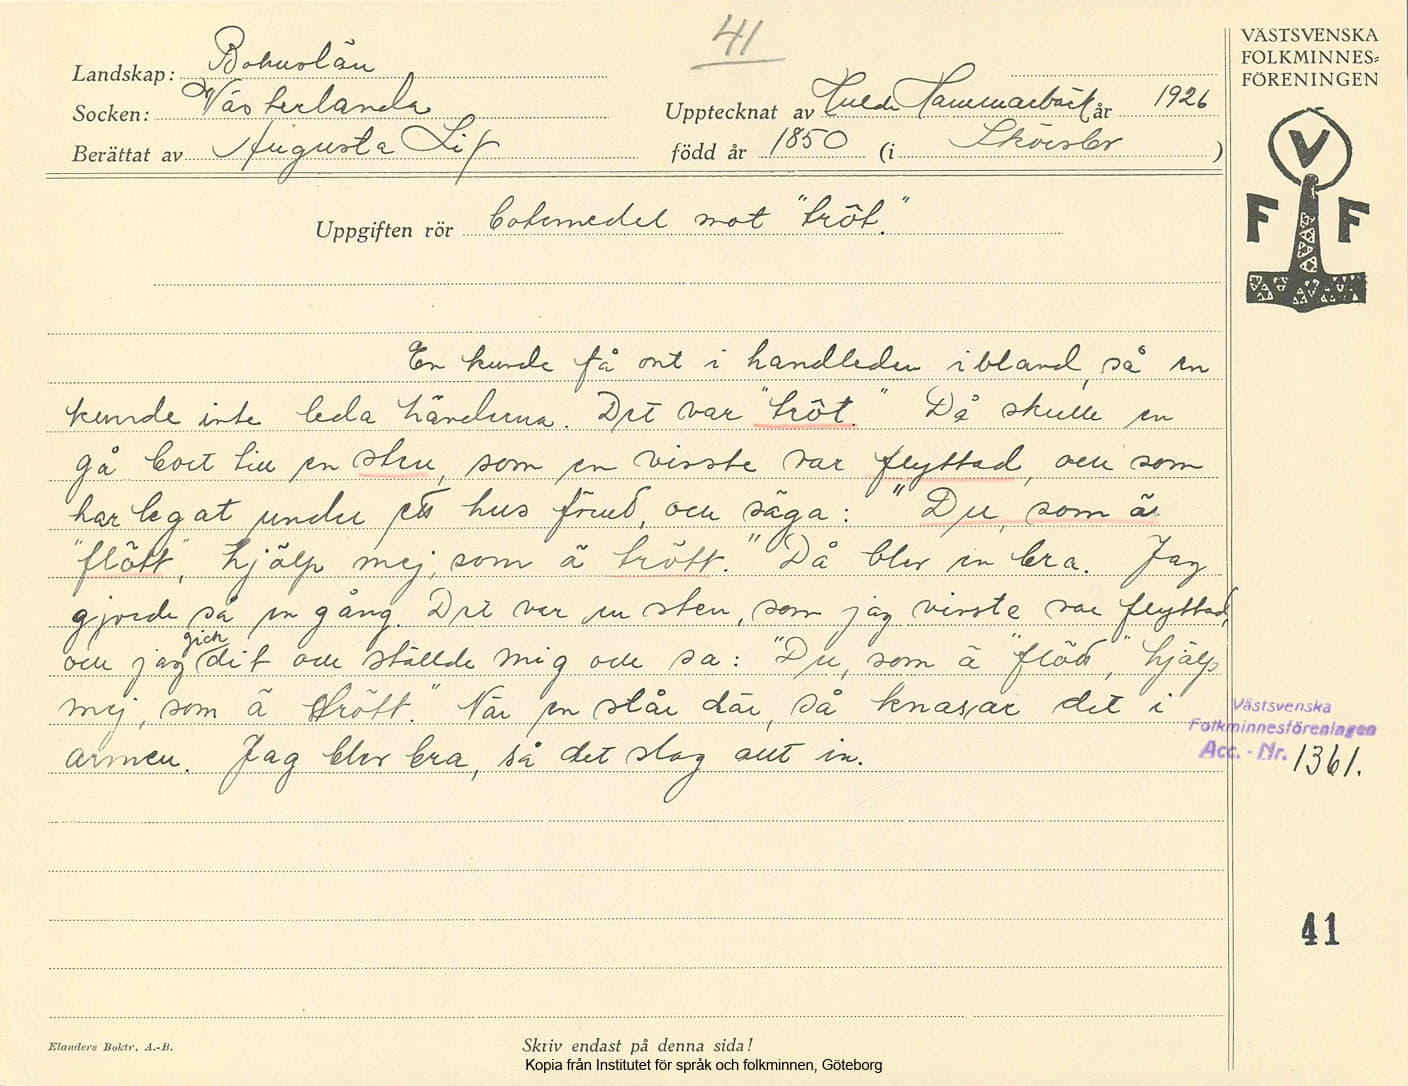 41
VÄSTSVENSKA
FOLKMINNES-
FÖRENINGEN
Landskap: Bohuslän
Socken: Västerlanda
Upptecknat av Hulda Hammarbäck år 1926
Berättat av Augusta Lif
född år 1850 (i )
V
F F
Uppgiften rör botemedel mot "tröt."
En kunde få ont i handleden ibland, så en
kunde inte leda händerna. Det var "tröt." Då skulle en
gå bort till en sten, som en visste var flyttad, och som
har legat under ett hus förut, och säga: "Du, som ä
"flött", hjälp mej, som ä trött." Då blev en bra. Jag
gjorde så en gång. Det var en sten, som jag visste var flyttad,
och jag gick dit och ställde mig och sa: "Du, som ä "flött", hjälp
mej, som ä trött." När en står där, så knasar det i
armen. Jag blev bra, så det slog allt in.
Västsvenska
Folkminnesföreningen
Acc. - Nr. 1361.
41
Elanders Boktr. A.-B.
Skriv endast på denna sida!
Kopia från Institutet för språk och folkminnen, Göteborg